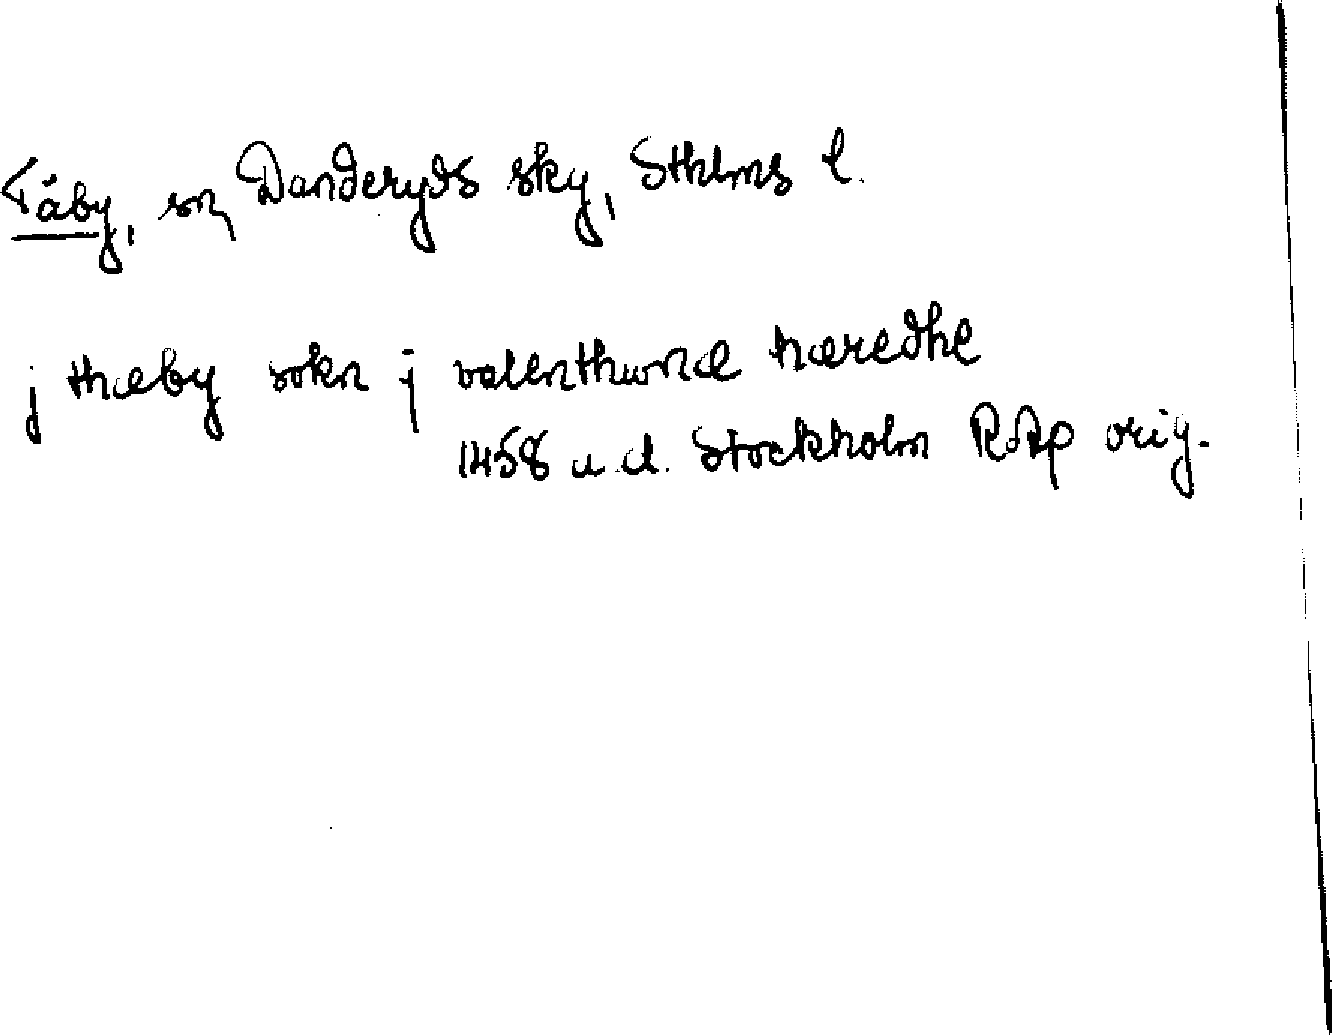 Täby, sn, Danderyds sky, Sthlms l.
j thæby sokn j valenthunæ hæredhe
1458 u.d. Stockholm RAp orig.